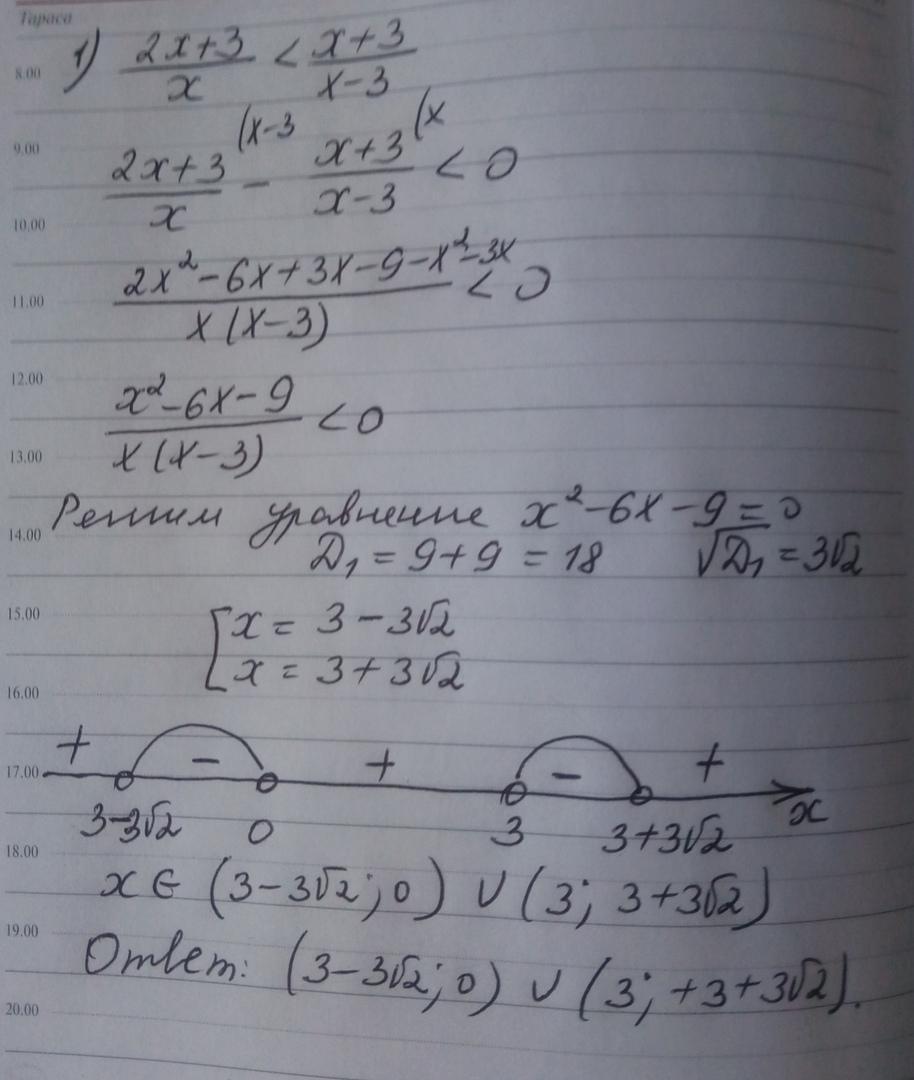 Тараса
8.00
1) (2x+3)/x < (x+3)/(x-3)
9.00
(2x+3)/x (x-3 - (x+3)/(x-3) (x < 0
10.00
(2x²-6x+3x-9-x²-3x)/(x(x-3)) < 0
11.00
12.00
(x²-6x-9)/(x(x-3)) < 0
13.00
Решим уравнение x²-6x-9=0
14.00
D₁ = 9+9 = 18 √D₁ = 3√2
15.00
[ x = 3-3√2
x = 3+3√2
16.00
+ - + - +
17.00
3-3√2 0 3 3+3√2 x
18.00
x ∈ (3-3√2; 0) ∪ (3; 3+3√2)
19.00
Ответ: (3-3√2; 0) ∪ (3; +3+3√2).
20.00